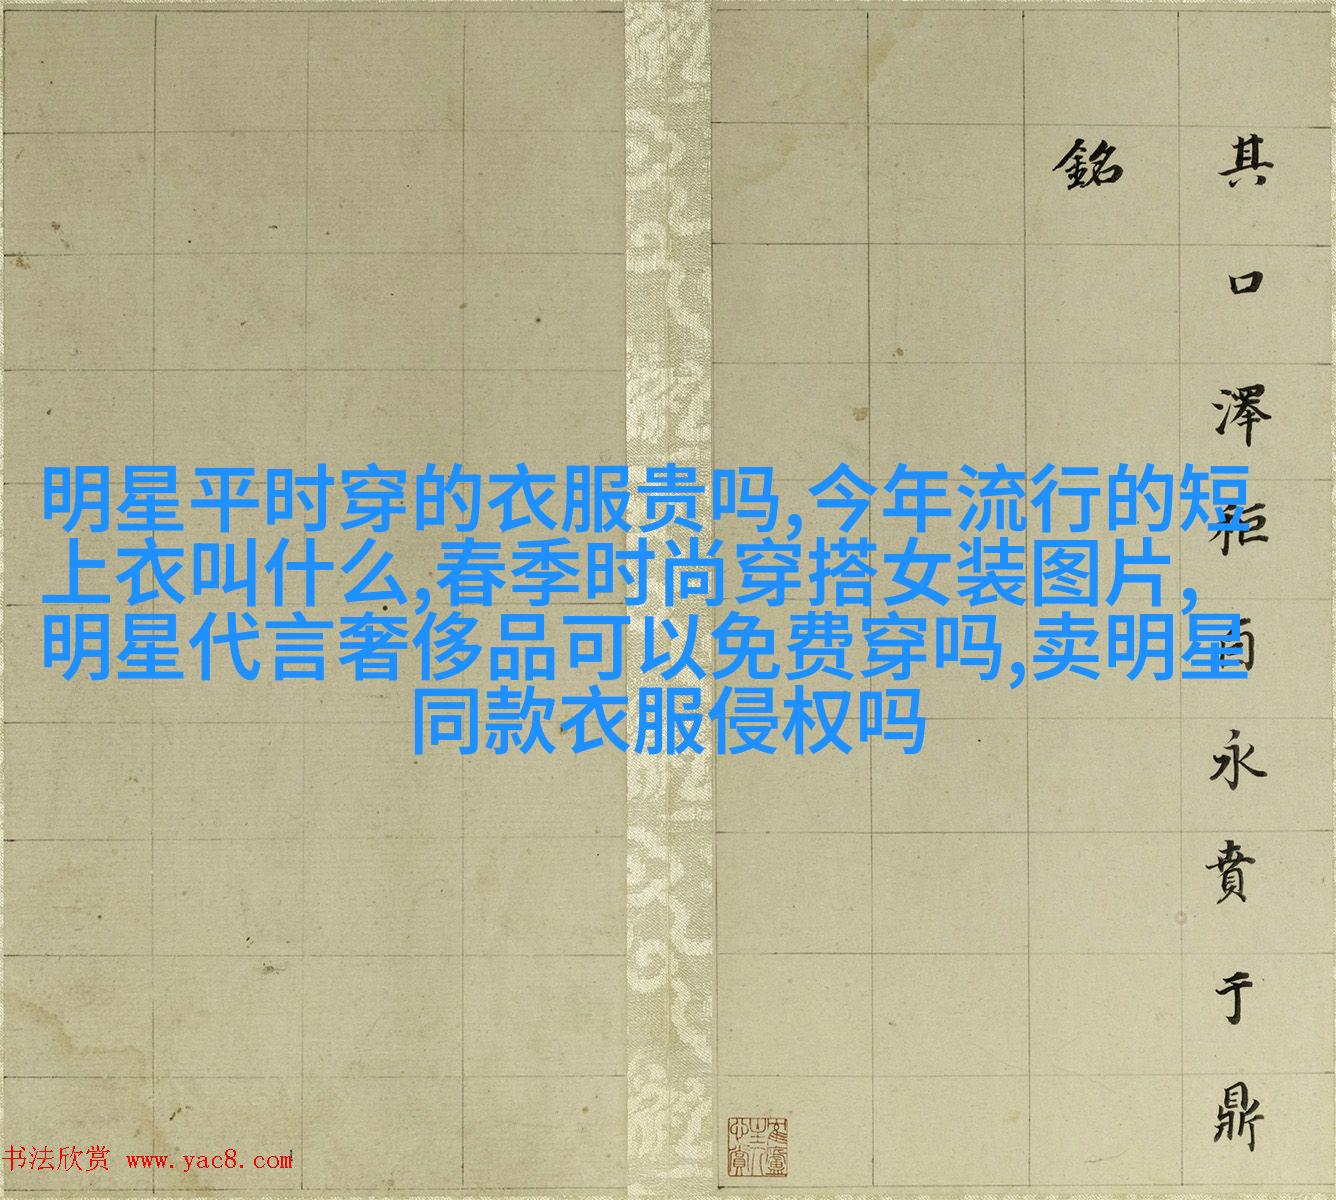 明星平时穿的衣服贵吗,今年流行的短
上衣叫什么,春季时尚穿搭女装图片,
明星代言奢侈品可以免费穿吗,卖明星
同款衣服侵权吗
其口澤柜卣永賁于鼎
銘
书法欣赏 www.yac8.com